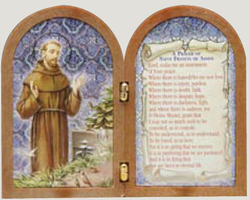 A Prayer of
Saint Francis of Assisi
Lord, make me an instrument
of Your peace.
Where there is hatred let me sow love,
Where there is injury, pardon
Where there is doubt, faith,
Where there is despair, hope,
Where there is darkness, light,
and where there is sadness, joy
O Divine Master, grant that
I may not so much seek to be
consoled, as to console,
To be understood, as to understand,
To be loved, as to love
For it is in giving that we receive,
It is in pardoning that we are pardoned
And it is in dying that
we are born to eternal life.